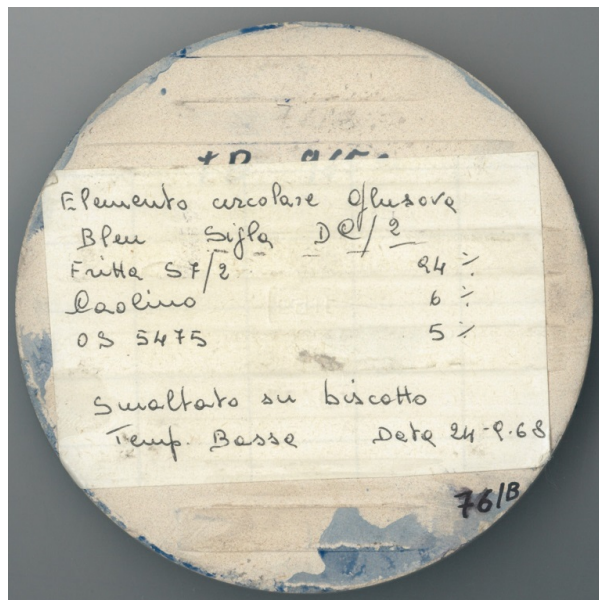 Elemento circolare Glusova
Bleu Sigla DC/2
Fritta S7/2 24 %
Caolino 6 %
OS 5475 5 %
Smaltato su biscotto
Temp. Bassa Data 24-9-68
76/B